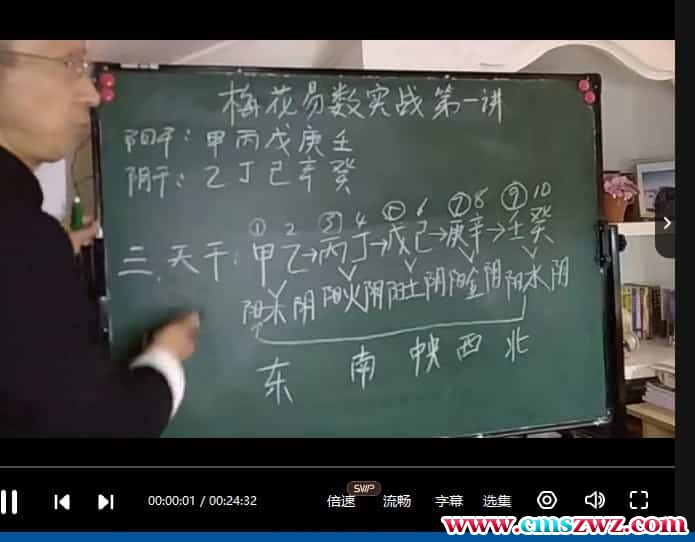 梅花易数实战第一讲
阳干：甲丙戊庚壬
阴干：乙丁己辛癸
① 2 ③ 4 ⑤ 6 ⑦ 8 ⑨ 10
二、天干：甲乙→丙丁→戊己→庚辛→壬癸
阳木阴 阳火阴 阳土阴 阳金阴 阳水阴
东 南 中央 西 北
00:00:01 / 00:24:32
倍速
SVIP
流畅
字幕
选集
www.cmszwz.com